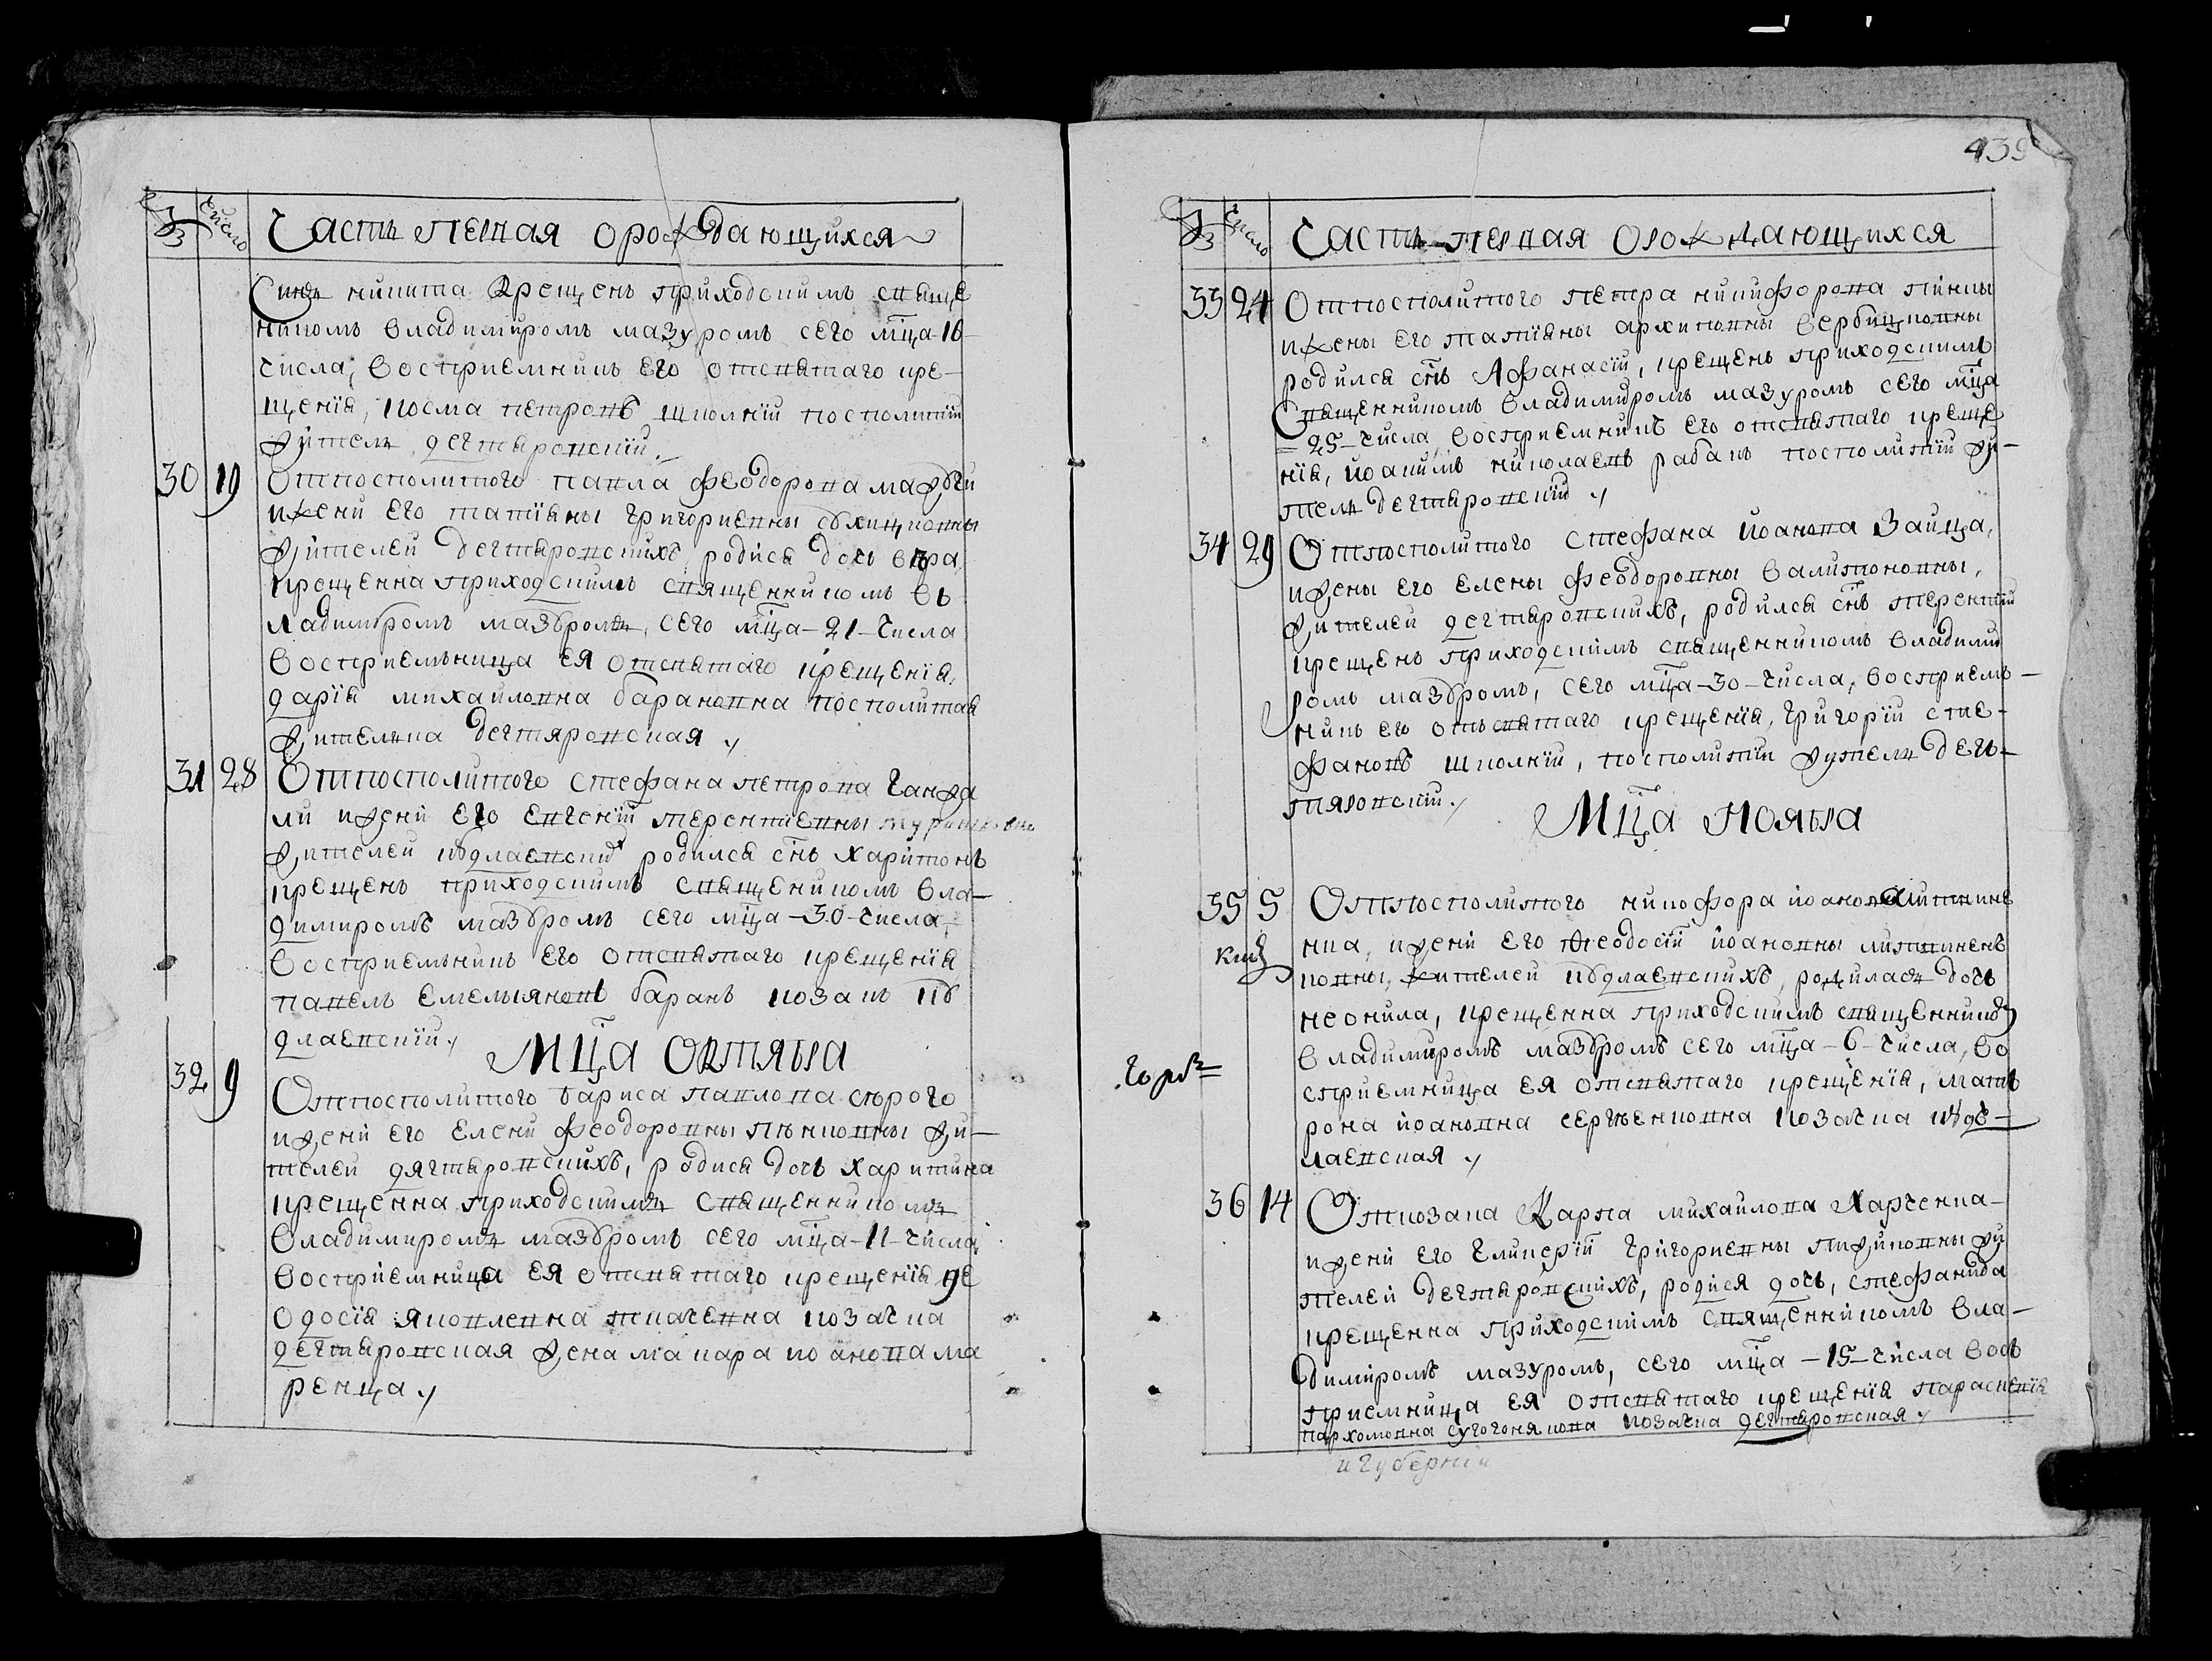 № Число Часть первая орождающихся
Синъ никита крещенъ приходскимъ свяще
никомъ владимиромъ мазуромъ сего мца 10
числа, восприемникъ его отсвятаго кре-
щения, косма петровъ школнїй посполитїй
житель дегтяровскїй
30 19 Отпосполитого павла феодорова мажуги
ижени его татияны григориевны
жителей дегтяровскихъ родися дочь вѣра
крещенна приходскимъ священникомъ в
ладимѣромъ мазуромъ, сего мца-21-числа
восприемъница ея отсвятаго крещенїя,
дарїя михайловна барановна посполитая
жителка дегтяровская
31 28 Отпосполитого стефана петрова ганжа
ли ижени его евгенїи терентиевны
жителей кудлаевских родился снъ харитонъ
крещенъ приходскимъ священикомъ вла-
димиромъ мазуромъ сего мца-30-числа
восприемъникъ его отсвятаго крещенїя
павелъ емельяновъ баранъ козакъ ку
длаевскїи
Мца октября
32 9 Отпосполитого бариса павлова скорого
ижени его елени феодоровны пѣнковны жи-
телей дягтяровскихъ, родися дочь харитина
крещенна приходскимъ священникомъ
владимиромъ мазуромъ сего мца-11-числа
восприемница ея отсвятаго крещения фе
одосїя яковлевна ткачевна козачка
дегтяровская жена макара иоанова ма
ренца
439
№ Число Часть первая орождающихся
33 24 Отпосполитого петра никифорова пинчы
ижены его татияны архиповны вербицковны
родился снъ Афанасїи, крещенъ приходскимъ
Священникомъ владимиромъ мазуромъ сего мца
25-числа, восприемникъ его отсвятаго креще
нїя, иоакимъ николаевъ рабакъ посполитїи жи-
тель дегтяровскїй
34 29 Отпосполитого стефана иоанова заица,
ижены его елены феодоровны валитоновны,
жителей дегтяровскихъ, родился снъ терентїй
крещенъ приходскимъ священникомъ владими
ромъ мазуромъ, сего мца-30-числа, восприемъ-
никъ его отъсвятаго крещенїя, григорїй сте-
фановъ школнїй, посполитїй житель дегъ-
тяровскїй
Мца ноября
35 5 Отпосполитого никифора иоанова литвине
нка, ижени его феодосїй иоановны литвиненъ
ковны, жителей кудлаевскихъ, родилася дочь
неонила, крещенна приходскимъ священником
владимиромъ мазуромъ сего мца-6-числа, во
сприемница ея отсвятаго крещенїя, матъ
рона иоановна сергѣенковна козачка куд-
лаевская
36 14 Откозака Карпа михайлова Харченка-
ижени его гликерїй григориевны пижиковны жи
телей дегтяровскихъ, родися дочь, стефанида
крещенна приходскимъ священникомъ вла-
димиромъ мазуромъ, сего мца-15-числа вось
приемница ея отсвятаго крещенїя параскевїя
пархомовна козачка дегтяровская
и Губернии